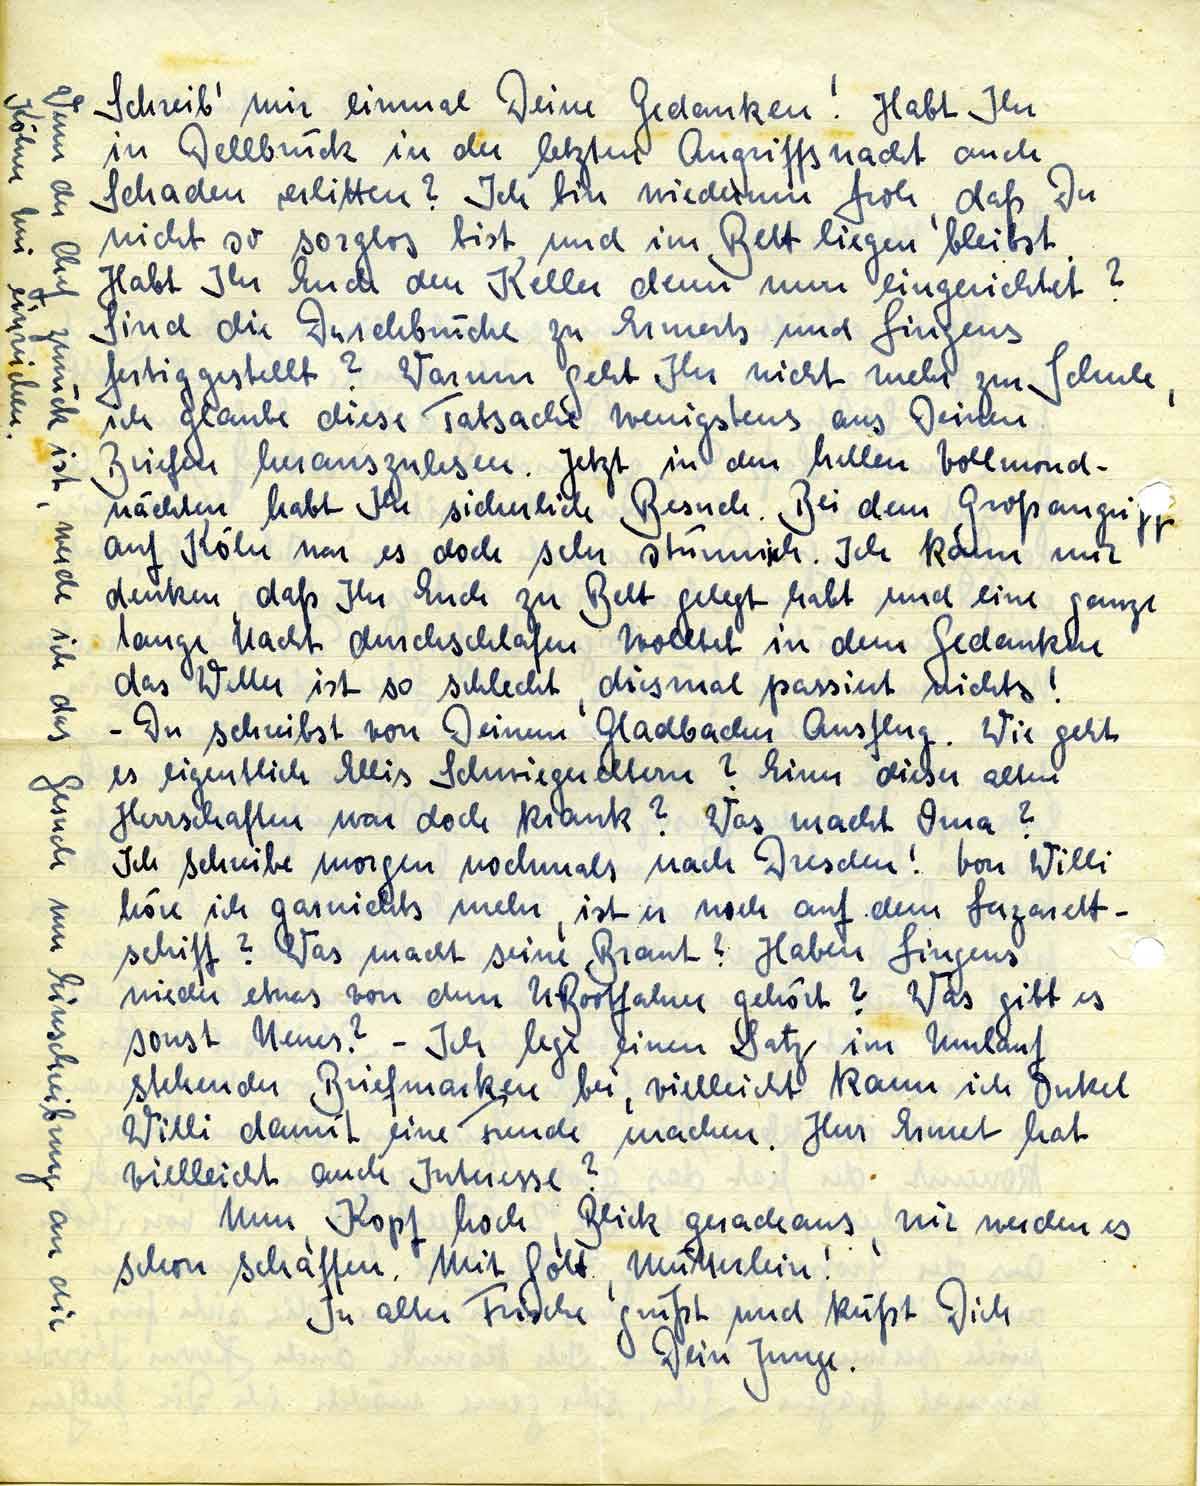 Schreib' mir einmal Deine Gedanken! Habt Ihr
in Dellbrück in der letzten Angriffsnacht auch
Schaden erlitten? Ich bin wiederum froh, daß Du
nicht so sorglos bist, und im Bett liegen bleibst.
Habt Ihr Euch den Keller denn nun eingerichtet?
Sind die Durchbrüche zu Ermerts und Lingens
fertiggestellt? Warum geht Ihr nicht mehr zur Schule,
ich glaube diese Tatsache wenigstens aus Deinen
Briefen herauszulesen. Jetzt in den hellen Vollmond-
nächten habt Ihr sicherlich Besuch. Bei dem Großangriff
auf Köln war es doch sehr stürmisch. Ich kann mir
denken, daß Ihr Euch zu Bett gelegt habt und eine ganze
lange Nacht durchschlafen wolltet in dem Gedanken
das Wetter ist so schlecht, diesmal passiert nichts!
- Du schreibst von Deinem Gladbacher Ausflug. Wie geht
es eigentlich Ellis Schwiegereltern? Einer dieser alten
Herrschaften war doch krank? Was macht Oma?
Ich schreibe morgen nochmals nach Dresden! Von Willi
höre ich garnichts mehr, ist er noch auf dem Lazarett-
schiff? Was macht seine Braut? Haben Lingens
wieder etwas von dem UBootfahrer gehört? Was gibt es
sonst Neues? - Ich lege einen Satz im Umlauf
stehender Briefmarken bei, vielleicht kann ich Onkel
Willi damit eine Freude machen. Herr Ermert hat
vielleicht auch Interesse?
Nun, Kopf hoch, Blick geradeaus, wir werden es
schon schaffen. Mit Gott, Mütterlein!
In alter Frische grüßt und küßt Dich
Dein Junge.
Wenn der Chef zurück ist, werde ich das Gesuch um Einschreibung an die
Kölner Uni einreichen.